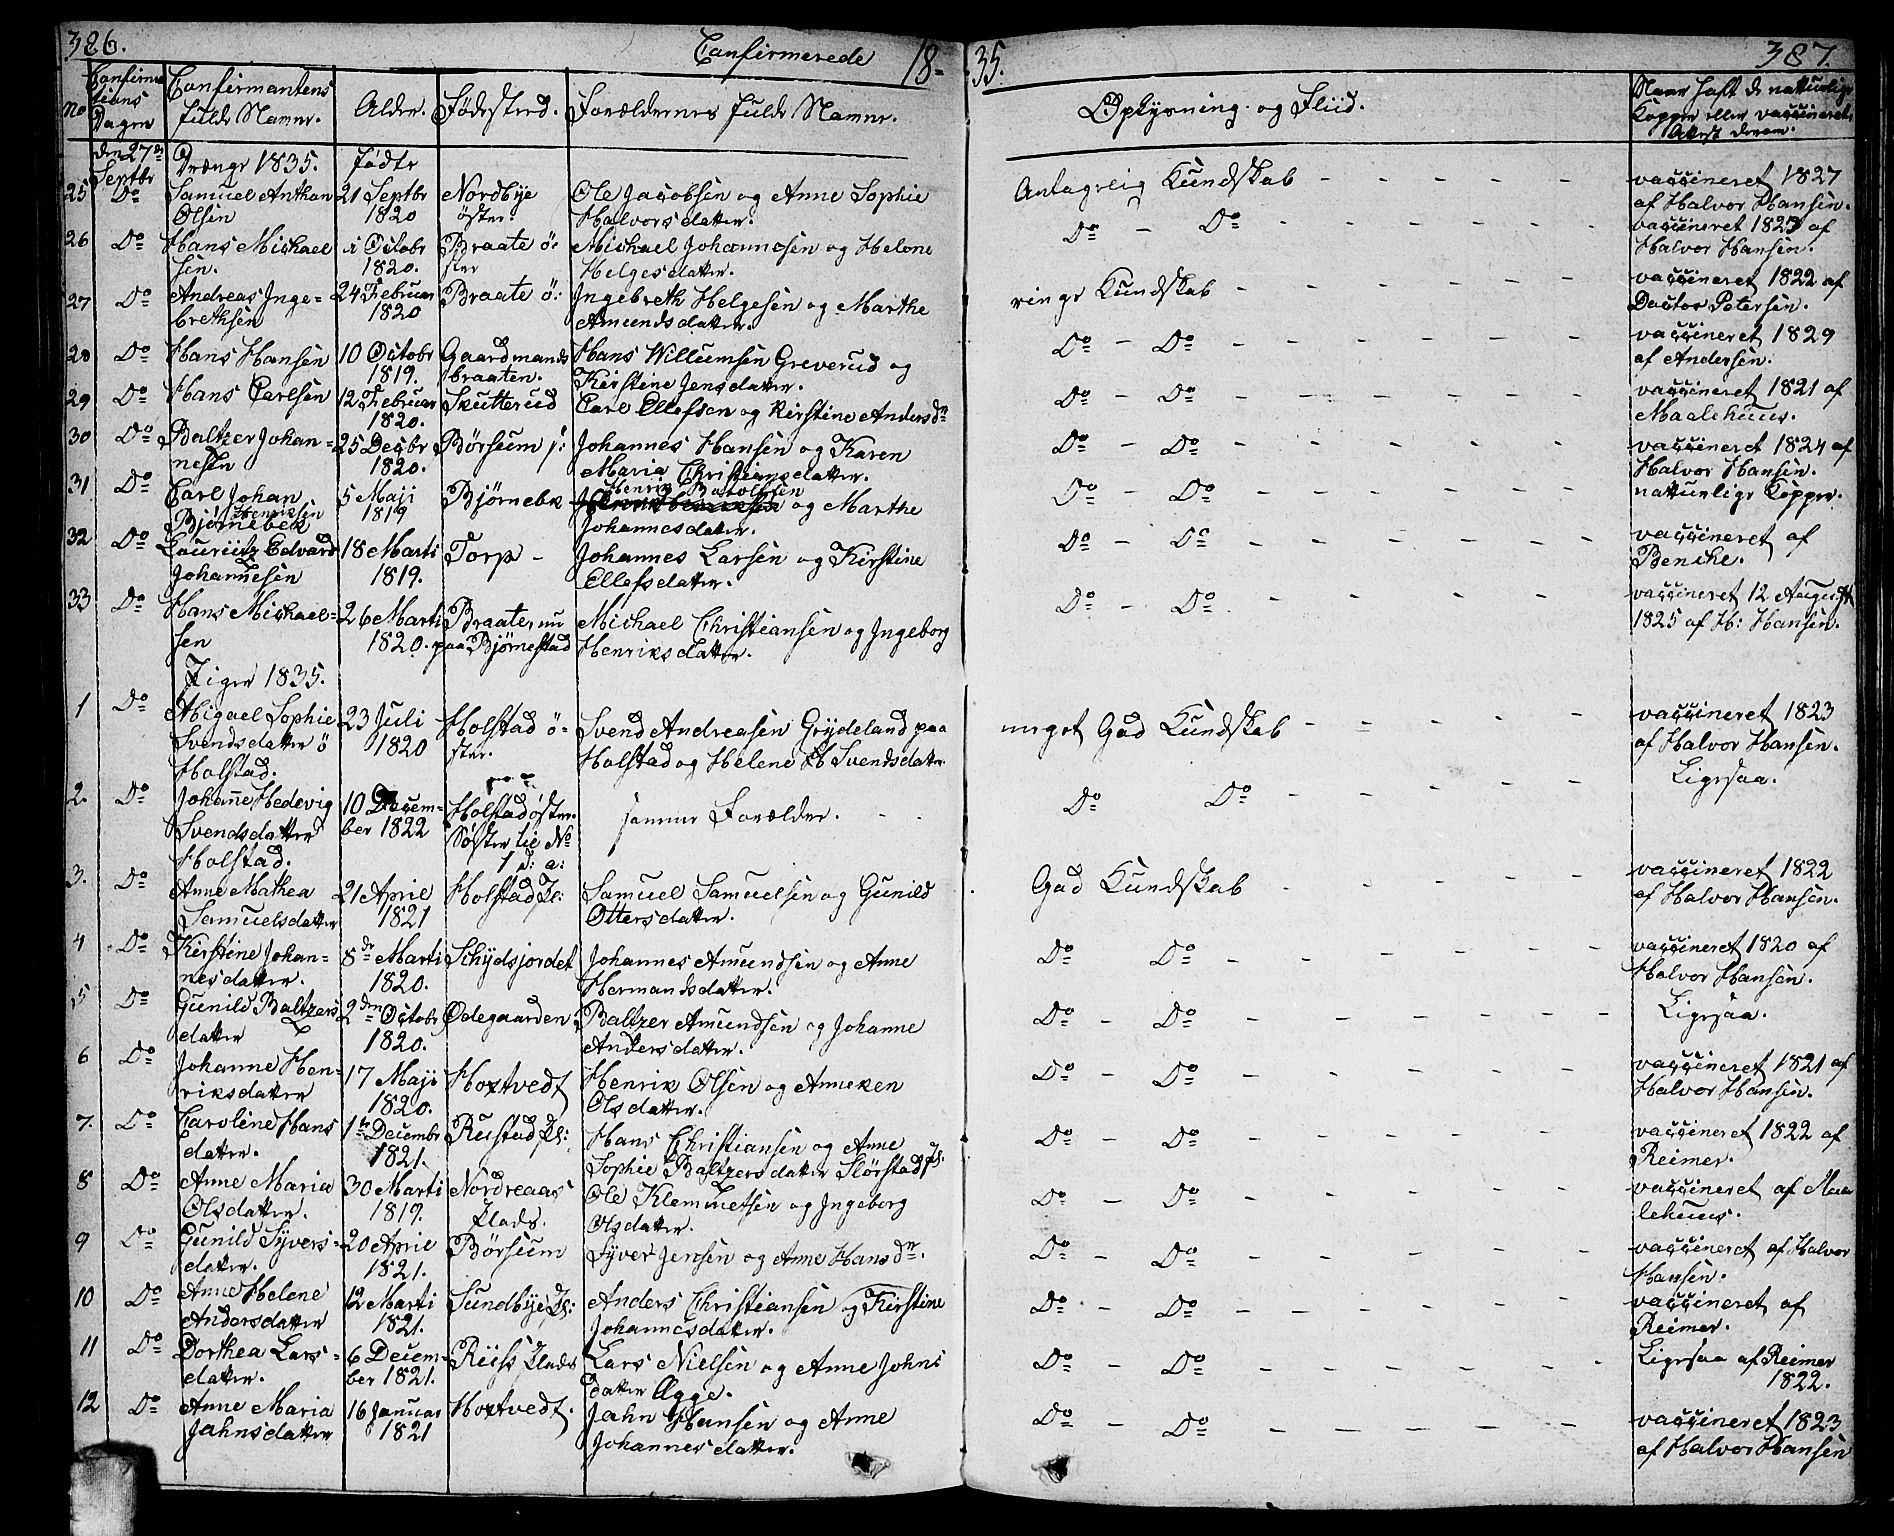 386.
Confirmerede 18-
35.
387.
No
Confirma
tions
Dagen
Confirmantens
fulde Navne.
Alder.
Fødested.
Forældrenes fulde Navne.
Oplysning og Fliid.
Naar haft de naturlige
Kopper eller vaccineret,
Attest derom.
den 27de
Septbr
Drenge 1835.
fødte
25 Do Samuel Anthon 21 Septbr Nordbye Ole Jacobsen og Anne Sophie Antagelig Kundskab - - - - - vaccineret 1827
Olsen 1820 øster. Halvorsdatter. af Halvor Hansen.
26 Do Hans Michael i Octobr Braate ø: Michael Johannesen og Helene Do - Do - - - - - vaccineret 1825 af
sen. 1820. ster Helgesdatter. Halvor Hansen.
27 Do Andreas Inge= 24 Februar Braate ø: Ingebreth Helgesen og Marthe ringe Kundskab - - - - - vaccineret 1822 af
brethsen 1820 Amundsdatter. Doctor Petersen.
28 Do Hans Hansen 10 Octobr Gaardmands Hans Willumsen Greverud og Do - Do - - - - - vaccineret 1829
1819. braaten. Kirstine Jensdatter. af Andersen.
29 Do Hans Carlsen 12 Februar Skutterud Carl Ellefsen og Kirstine Andersdr Do - Do - - - - - vaccineret 1821 af
1820. Maalehuus.
30 Do Baltzer Johan= 25 Decbr Børsum j: Johannes Hansen og Karen Do - Do - - - - - vaccineret 1824 af
nesen 1820. Maria Christiansdatter. Halvor Hansen.
31 Do Carl Johan 5 Maji Bjørnebek Henrik og Marthe Do - Do - - - - - naturlige Kopper.
Henriksen
Bjørnebek 1819 Johannesdatter.
32 Do Lauriitz Edvard 18 Marti Torp - Johannes Larsen og Kirstine Do - Do - - - - - vaccineret af
Johannesen 1819. Ellefsdatter. Benche.
33 Do Hans Michael= 26 Marti Braate, nu Michael Christiansen og Ingeborg Do - Do - - - - - vaccineret 12 August
sen 1820. paa Bjørnestad Henriksdatter. 1825 af H: Hansen.
Piger 1835.
1 Do Abigael Sophie 23 Juli Holstad ø- Svend Andreasen Grydeland paa meget God Kundskab - - - - - vaccineret 1823
Svendsdatter ø 1820 ster. Holstad og Helene H Svendsdatter af Halvor Hansen.
Holstad.
2. Do Johanne Hedevig 10 Decem- Holstad øster. samme Forældre. Do Do - - - - - Ligesaa.
Svendsdatter ber 1822 Søster til No
Holstad. 1 d: a:
3. Do Anne Mathea 21 April Holstad Pl: Samuel Samuelsen og Gunild God Kundskab - - - - - vaccineret 1822
Samuelsdatter 1821 Ottersdatter. af Halvor Hansen.
4 Do Kirstine Johan= 8de Marti Schydsjordet Johannes Amundsen og Anne Do Do - - - - - vaccineret 1820 af
nesdatter. 1820. Hermandsdatter. Halvor Hansen.
5 Do Gunild Baltzers 2den Octobr Ødegaarden Baltzer Amundsen og Johanne Do - Do - - - - - Ligesaa.
datter 1820. Andersdatter.
6 Do Johanne Hen= 17 Maji Hoxtvedt Henrik Olsen og Anneken Do - Do - - - - - vaccineret 1821 af
riksdatter 1820. Olsdatter. Halvor Hansen.
7. Do Caroline Hans 1te Decembr Rustad Pl: Hans Christiansen og Anne Do - Do - - - - - vaccineret 1822 af
datter. 1821. Sophie Baltzersdatter Slørstad Pl: Reimer.
8 Do Anne Maria 30 Marti Nordreaas Ole Klemmetsen og Ingeborg Do - Do - - - - - vaccineret af Maa
Olsdatter. 1819. Plads. Olsdatter. lehuus.
9 Do Gunild Syvers= 20 April Børsum Syver Jensen og Anne Hansdr. Do - Do - - - - - vaccineret af Halvor
datter. 1821. Hansen.
10 Do Anne Helene 12 Marti Sundbye Pl: Anders Christiansen og Kirstine Do - Do - - - - - vaccineret af
Andersdatter 1821. Johannesdatter. Reimer.
11 Do Dorthea Lars= 6 Decem= Riiss Plads Lars Nielsen og Anne Johns Do - Do - - - - - Ligesaa af Reimer
datter. ber 1821. datter Agge. 1822.
12 Do Anne Maria 16 Januar Hoxtvedt. John Hansen og Anne Do - Do - - - - - vaccineret 1823
Johnsdatter 1821 Johannesdatter. af Halvor Hansen